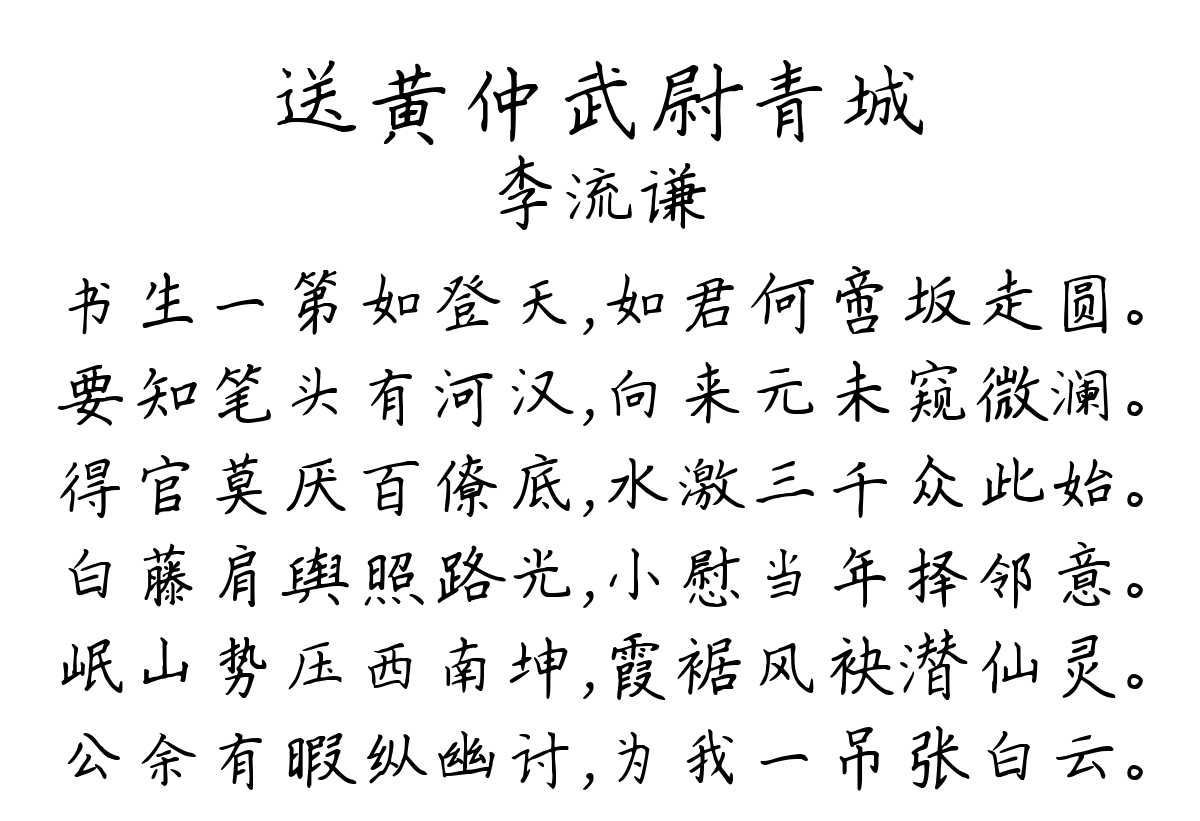 送黄仲武尉青城
李流谦
书生一第如登天,如君何啻坂走圆。
要知笔头有河汉,向来元未窥微澜。
得官莫厌百僚底,水激三千众此始。
白藤肩舆照路光,小慰当年择邻意。
岷山势压西南坤,霞裾风袂潜仙灵。
公余有暇纵幽讨,为我一吊张白云。